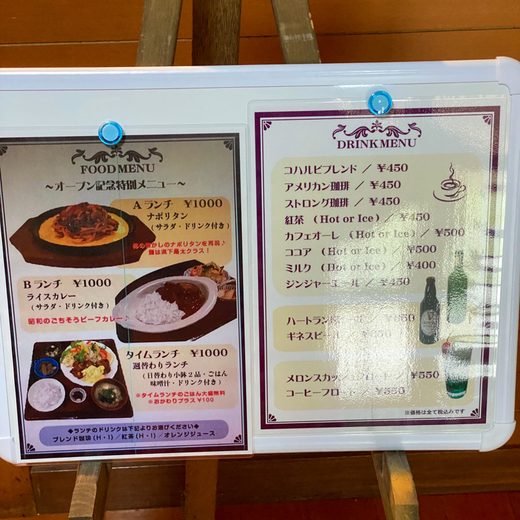 FOOD MENU
～オープン記念特別メニュー～
Aランチ ¥1000
ナポリタン
(サラダ・ドリンク付き)
麺は県下最大クラス!
Bランチ ¥1000
ライスカレー
(サラダ・ドリンク付き)
昭和のごちそうビーフカレー♪
タイムランチ ¥1000
週替わりランチ
(日替わり小鉢2品・ごはん
味噌汁・ドリンク付き)
※タイムランチのごはん大盛無料
※おかわりプラス¥100
◆ランチのドリンクは下記よりお選びください◆
ブレンド珈琲(H・I)/紅茶(H・I)/オレンジジュース
DRINK MENU
コハルビブレンド / ¥450
アメリカン珈琲 / ¥450
ストロング珈琲 / ¥450
紅茶 (Hot or Ice) / ¥450
カフェオーレ (Hot or Ice) / ¥500
ココア (Hot or Ice) / ¥500
ミルク (Hot or Ice) / ¥400
ジンジャーエール / ¥450
ハートランド
ギネスビール
メロンスカッシュフロート / ¥550
コーヒーフロート / ¥550
※価格は全て税込みです